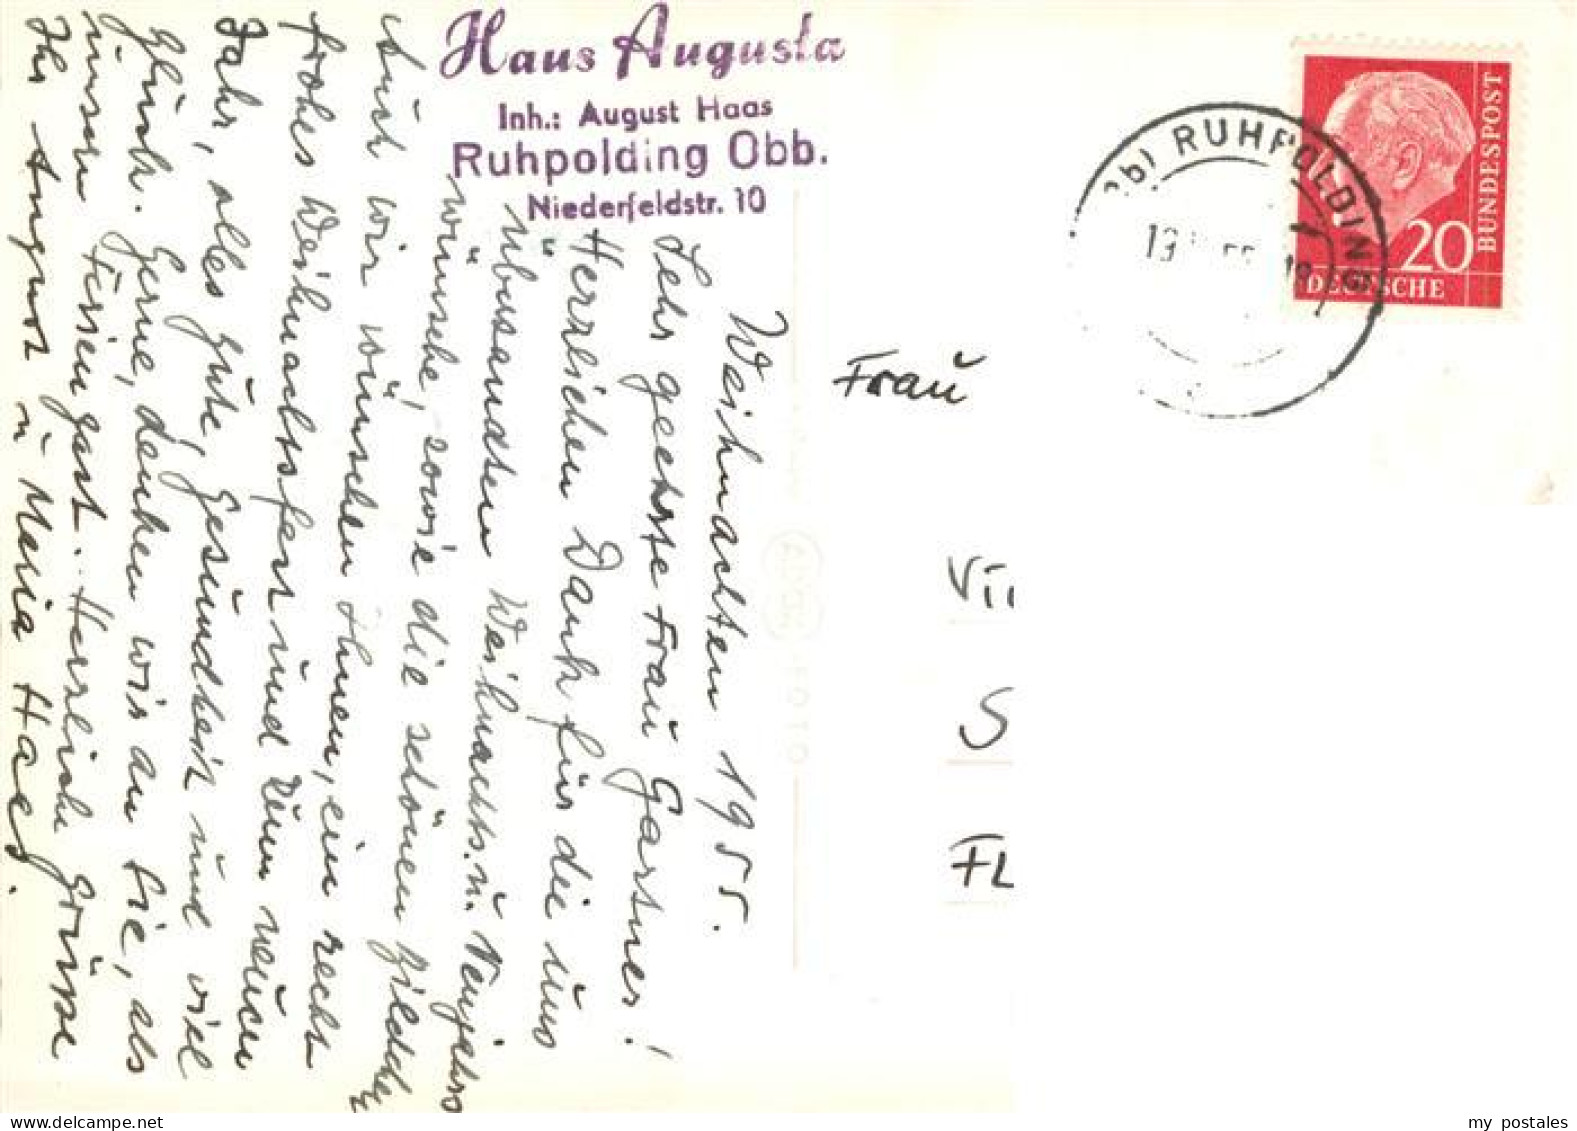 Haus Augusta
Inh.: August Haas
Ruhpolding Obb.
Niederfeldstr. 10
Weihnachten 1955.
Sehr geehrte Frau Gartner!
Herzlichen Dank für die uns
übersandten Weihnachts. u. Neujahrs
wünsche, sowie die schönen Bildchen
Auch wir wünschen Ihnen, ein recht
frohes Weihnachtsfest und zum neuen
Jahr, alles gute, Gesundheit und viel
Glück. Gerne, denken wir an Sie, als
unsern Feriengast. Herzliche Grüsse
Ihr August u Maria Haas.
(13b) RUHPOLDING
20
DEUTSCHE
BUNDESPOST
Frau
FOTO
my postales